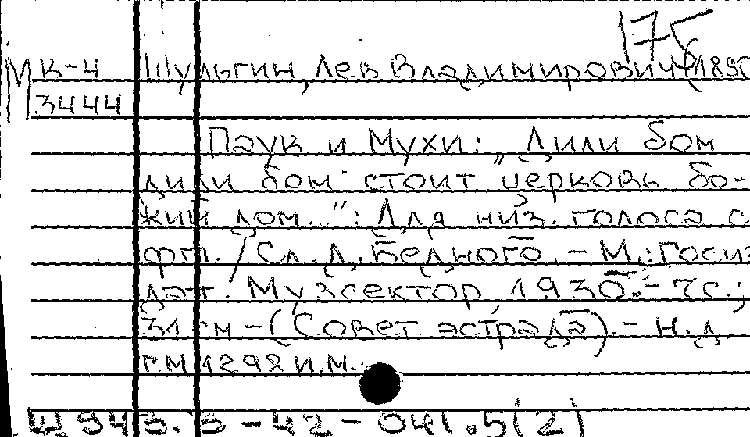 175
М К-4 Шульгин, Лев Владимирович (1890
3444
Паук и Мухи: „Дили бом
дили бом стоит церковь бо-
жий дом...": Для низ. голоса с
фп. / Сл. Д. Бедного. - М.: Госиз
дат. Музсектор, 1930. - 7с.;
31 см - (Совет эстрада). - Н.д.
г.м 1292 и.м.
Щ943.5-42-041.5(2)